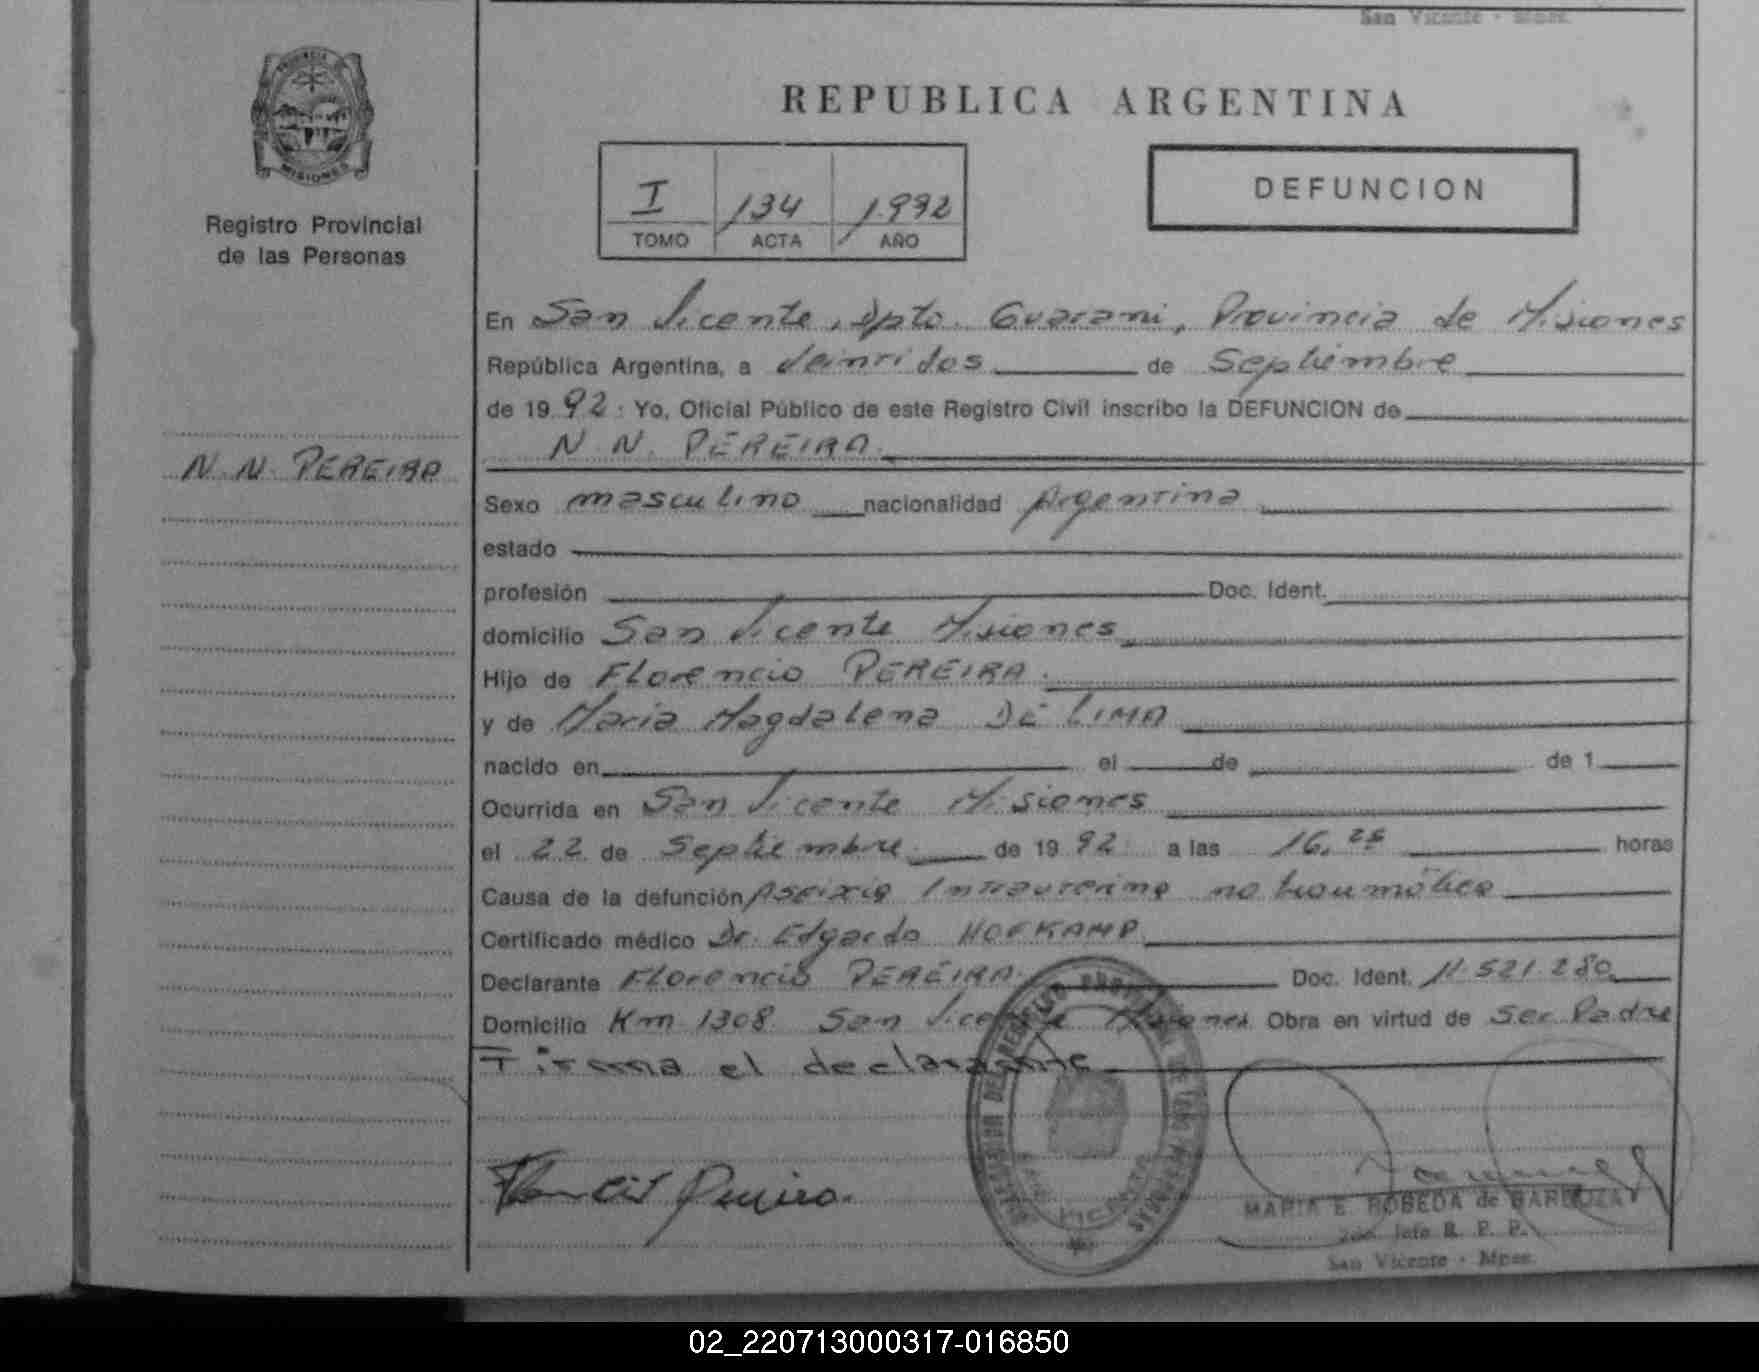 San Vicente - Mnes.
PROVINCIA DE
MISIONES
Registro Provincial
de las Personas
REPUBLICA ARGENTINA
I 134 1.992
TOMO ACTA AÑO
DEFUNCION
En San Vicente, Dpto. Guarani, Provincia de Misiones
República Argentina, a Veintidos de Septiembre
de 1992 : Yo, Oficial Público de este Registro Civil inscribo la DEFUNCION de
N. N. PEREIRA.
N. N. PEREIRA
Sexo masculino nacionalidad Argentina
estado
profesión Doc. Ident.
domicilio San Vicente Misiones
Hijo de Florencio PEREIRA.
y de Maria Magdalena DE LIMA
nacido en el de de 1
Ocurrida en San Vicente Misiones
el 22 de Septiembre de 1992 a las 16,25 horas
Causa de la defunción Asfixia Intrauterina no traumática
Certificado médico Dr. Edgardo HOFKAMP
Declarante Florencio PEREIRA. Doc. Ident. 11.521.280
Domicilio Km 1308 San Vicente Misiones Obra en virtud de Ser Padre
Firma el declarante
DEL REGISTRO PROVINCIAL DE LAS PERSONAS
SAN VICENTE
Florencio Pereira.
MARIA E. ROBEDA de BARBOZA
2da. Jefe R. P. P.
San Vicente - Mnes.
02_220713000317-016850